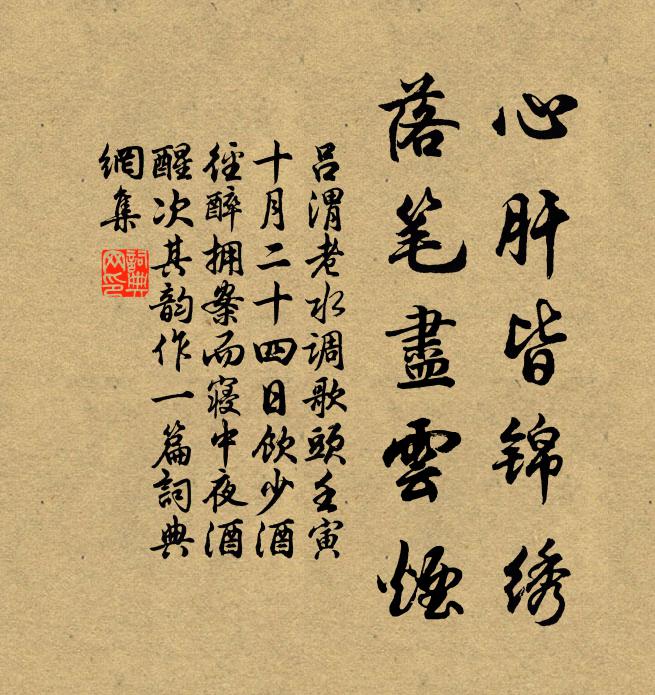 心肝皆锦绣
落笔盡雲煙
吕渭老水調歌頭壬寅
十月二十四日飲少酒
徑醉拥案而寝中夜酒
醒次其韵作一篇詞典
網集
詞典网印